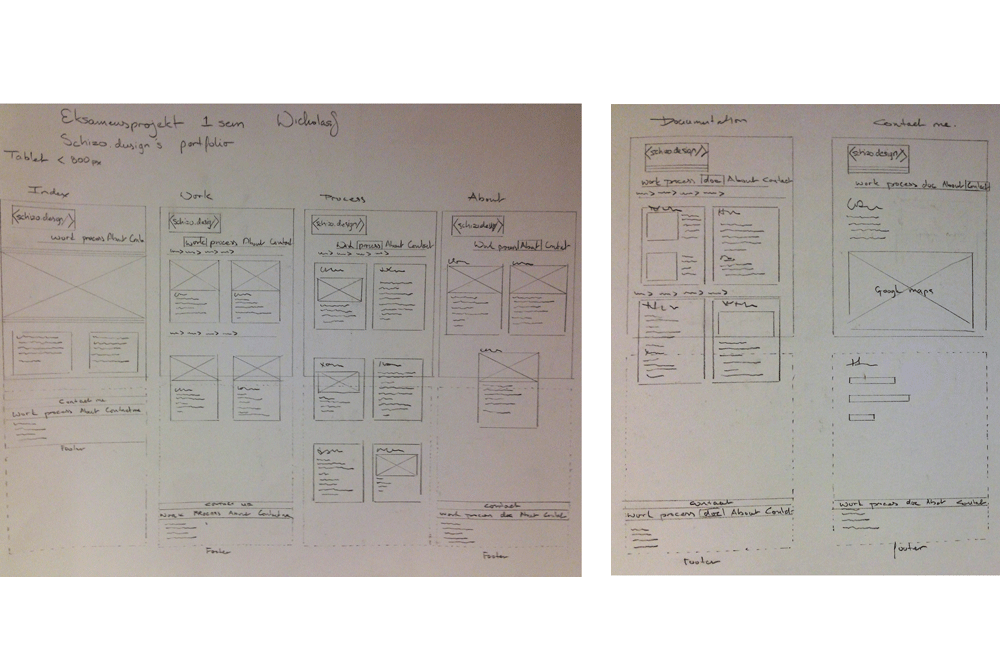 Eksamensprojekt 1 sem
Schizo.dusign's portfolio
Tablet < 800 px
Index
<schizo.design/>
work process About Conta
Contact me
Work process About Contact me
Footer
Work
<schizo.design/>
Work process About Contact
contact us
Work Process About Contact me
Footer
Process
<schizo.design/>
Work process About Contact
About
<schizo.design/>
Work process About Contact
contact
work process doc About Contact
Footer
Documentation
<schizo.design/>
Work process doc About Contact
contact
Work process doc About Contact
Footer
Contact me.
<schizo.design/>
Work process doc About Contact
Google maps
Work process doc About Contact
footer